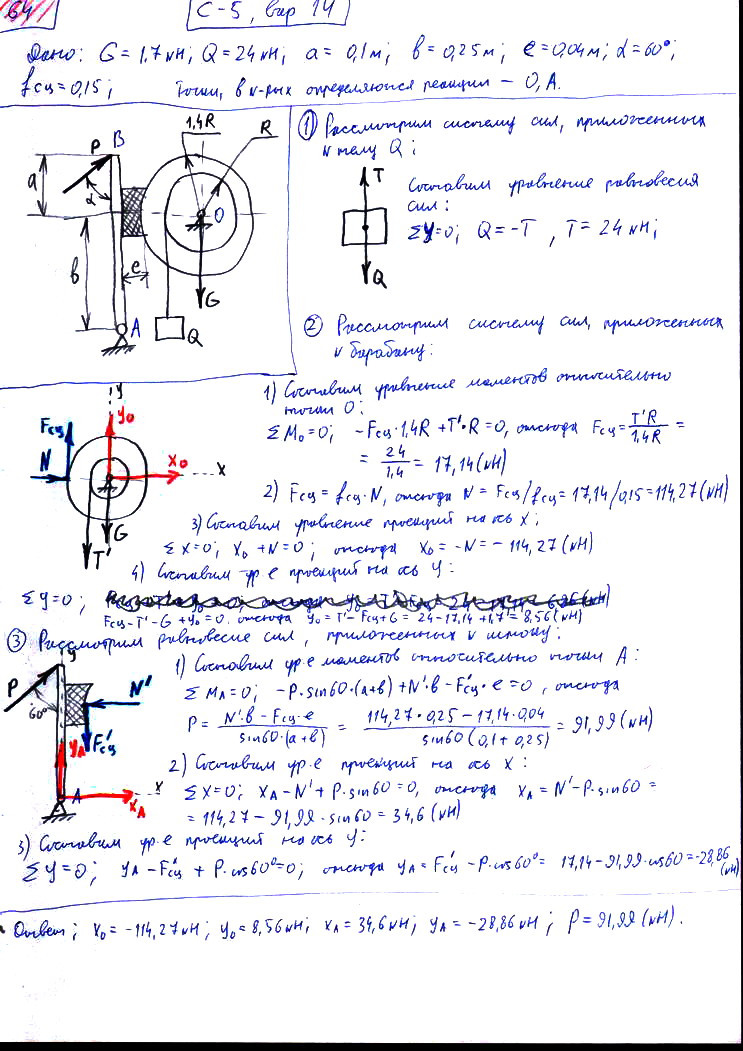 64
С-5, вар 14
Дано: G = 1,7 кН; Q = 24 кН; a = 0,1 м; в = 0,25 м; e = 0,04 м; α = 60°;
fсц = 0,15; Точки, в к-рых определяются реакции – O, A.
1,4R
R
B
P
a
α
O
в
e
G
A
Q
① Рассмотрим систему сил, приложенных
к телу Q:
T
Q
Составим уравнение равновесия
сил:
Σy=0; Q = -T, T = 24 кН;
② Рассмотрим систему сил, приложенных
к барабану:
y
Fсц
Yo
N
Xo
x
G
T'
1) Составим уравнение моментов относительно
точки O:
ΣMo=0; -Fсц·1,4R + T'·R = 0, отсюда Fсц = T'R / 1,4R =
= 24 / 1,4 = 17,14 (кН)
2) Fсц = fсц·N, отсюда N = Fсц/fсц = 17,14/0,15 = 114,27 (кН)
3) Составим уравнение проекций на ось x:
Σx=0; Xo + N = 0; отсюда Xo = -N = -114,27 (кН)
4) Составим ур-е проекций на ось y:
Σy=0;
Fсц - T' - G + Yo = 0, отсюда Yo = T' - Fсц + G = 24 - 17,14 + 1,7 = 8,56 (кН)
③ Рассмотрим равновесие сил, приложенных к
y
P
60°
N'
Fсц'
YA
A
x
XA
1) Составим ур-е моментов относительно точки A:
ΣMA=0; -P·sin60·(a+в) + N'·в - Fсц'·e = 0, отсюда
P = N'·в - Fсц·e / sin60·(a+в) = 114,27·0,25 - 17,14·0,04 / sin60(0,1+0,25) = 91,99 (кН)
2) Составим ур-е проекций на ось x:
Σx=0; XA - N' + P·sin60 = 0, отсюда XA = N' - P·sin60 =
= 114,27 - 91,99·sin60 = 34,6 (кН)
3) Составим ур-е проекций на ось y:
Σy=0; YA - Fсц' + P·cos60° = 0; отсюда YA = Fсц' - P·cos60° = 17,14 - 91,99·cos60 = -28,86 (кН)
Ответ; Xo = -114,27 кН; Yo = 8,56 кН; XA = 34,6 кН; YA = -28,86 кН; P = 91,99 (кН).